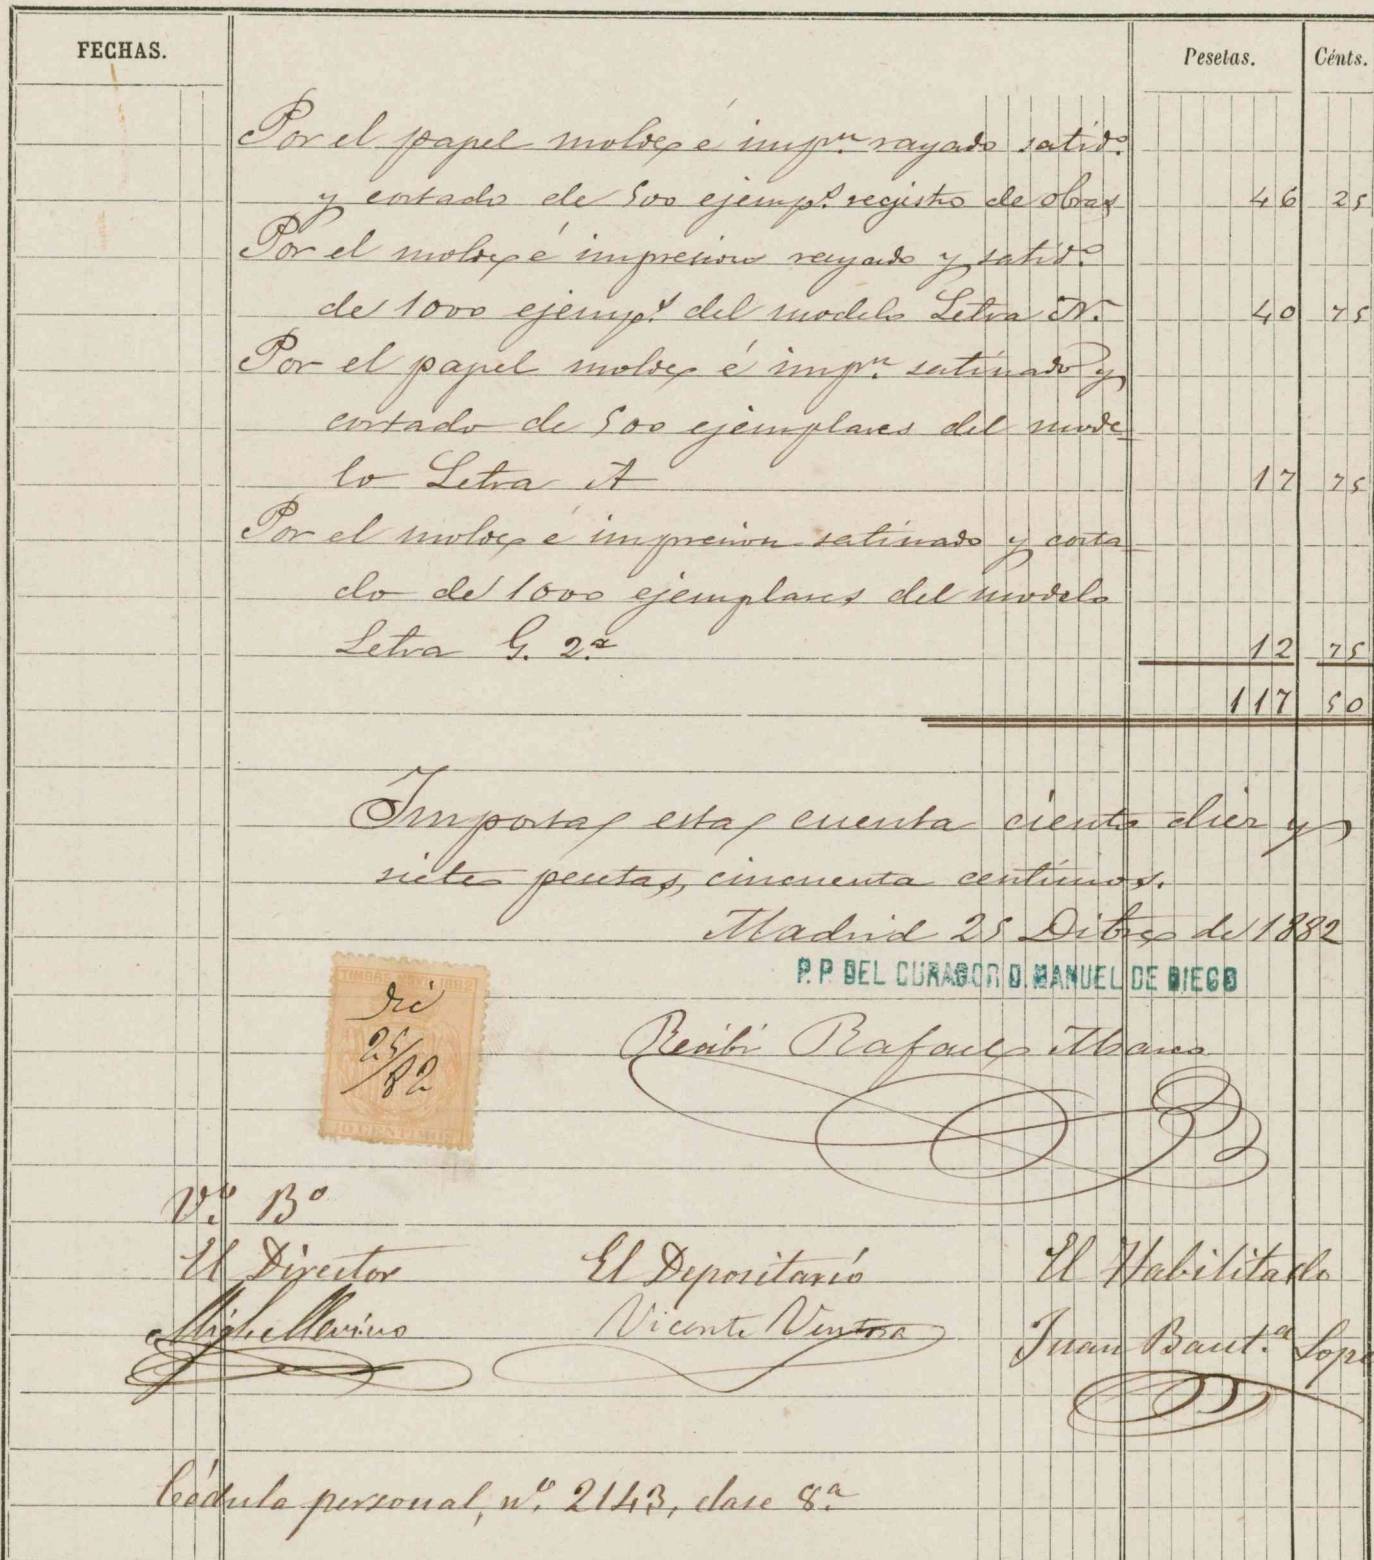 FECHAS. Pesetas. Cénts.
Por el papel molde é impn. rayado satido.
y cortado de 500 ejemps. registro de obras 46 25
Por el molde é impresion rayado y satido.
de 1000 ejemps. del modelo Letra N. 40 75
Por el papel molde é impn. satinado y
cortado de 500 ejemplares del mode-
lo Letra A 17 75
Por el molde é impresion satinado y corta-
do de 1000 ejemplares del modelo
Letra G. 2ª 12 75
117 50
Importa esta cuenta ciento diez y
siete pesetas, cincuenta centimos.
Madrid 25 Dibre de 1882
P. P. DEL CURADOR D. MANUEL DE DIEGO
TIMBRE MOVIL 1882
Dic
25/82
10 CENTIMOS
Recibi Rafael Marco
Vº Bº
El Director El Depositario El Habilitado
Migl. Merino Vicente Ventosa Juan Baut.a Lope
Cédula personal, nº 2143, clase 8ª